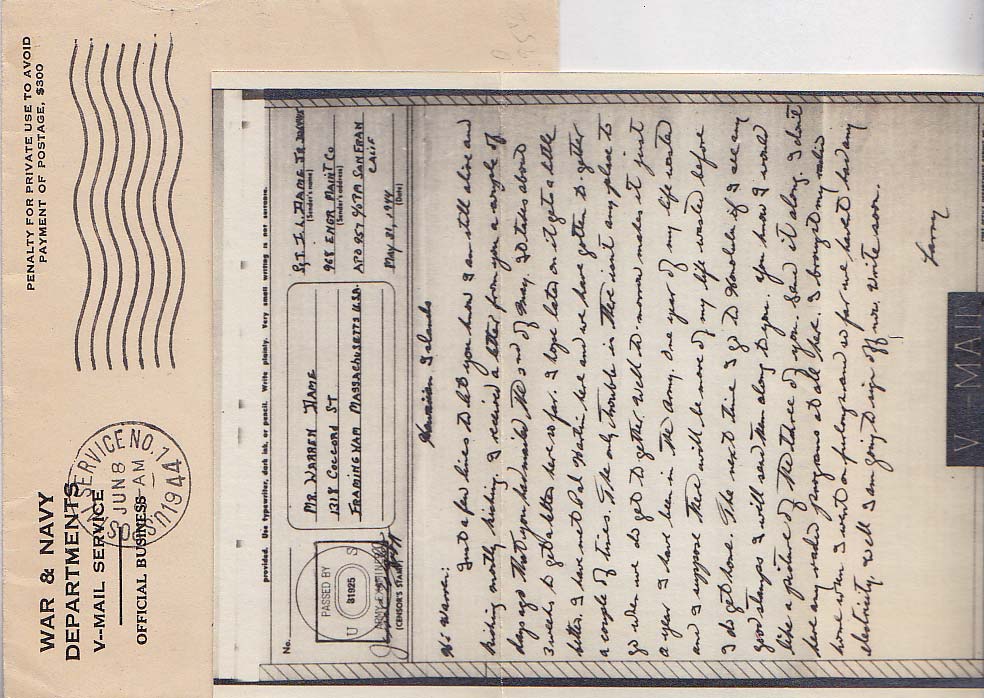 WAR & NAVY
DEPARTMENTS
V--MAIL SERVICE
OFFICIAL BUSINESS
SERVICE NO. 1
JUN 8
-AM
1944
PENALTY FOR PRIVATE USE TO AVOID
PAYMENT OF POSTAGE, $300
provided. Use typewriter, dark ink, or pencil. Write plainly. Very small writing is not
No.
PASSED BY
U S
31925
ARMY EXAMINER
(CENSOR'S STAMP)
MR WARREN HAME
1318 CONCORD ST
FRAMINGHAM MASSACHUSETTS U.S.A.
SGT I. L. HAME JR
(Sender's name)
968 ENGR MAINT CO
(Sender's address)
APO 957 % PM SAN FRAN
CALIF
MAY 31, 1944
(Date)
Hawaiian Islands
Hi Warren:
Just a few lines to let you know I am still alive and
kicking mostly kicking. I received a letter from you a couple of
days ago that you had mailed the 2nd of May. It takes about
3 weeks to get a letter here so far. I hope later on it gets a little
better. I have met Pal Martin here and we have gotten together
a couple of times. The only trouble is there isn't any place to
go when we do get together. Well to-morrow makes it just
a year I have been in the army. One year of my life wasted
and I suppose there will be more of my life wasted before
I do get home. The next time I go to Honolulu if I see any
good stamps I will send them along to you. You know I would
like a picture of the three of you. Send it along. I don't
hear any radio programs at all here. I brought my radio
home when I went on furlough and so far we hasn't had any
electricity. Well I am going to sign off now. Write soon.
Larry
V-MAIL